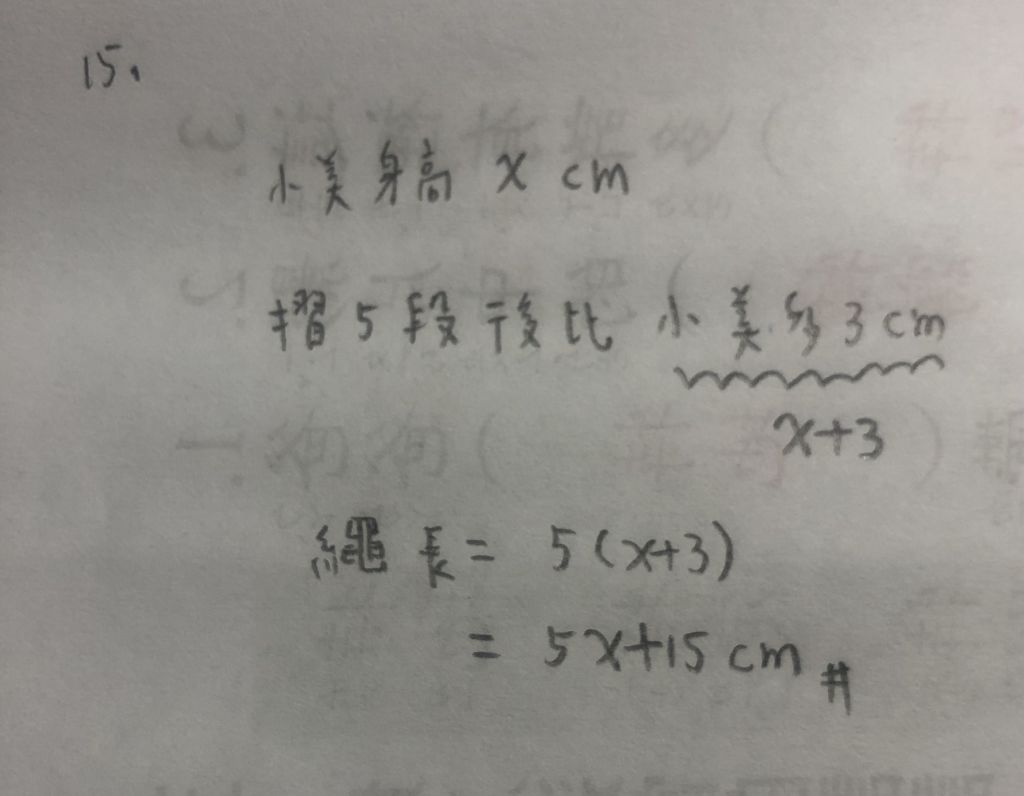 15.
小美身高 x cm
摺5段後比小美多3cm
x+3
繩長= 5(x+3)
= 5x+15 cm #